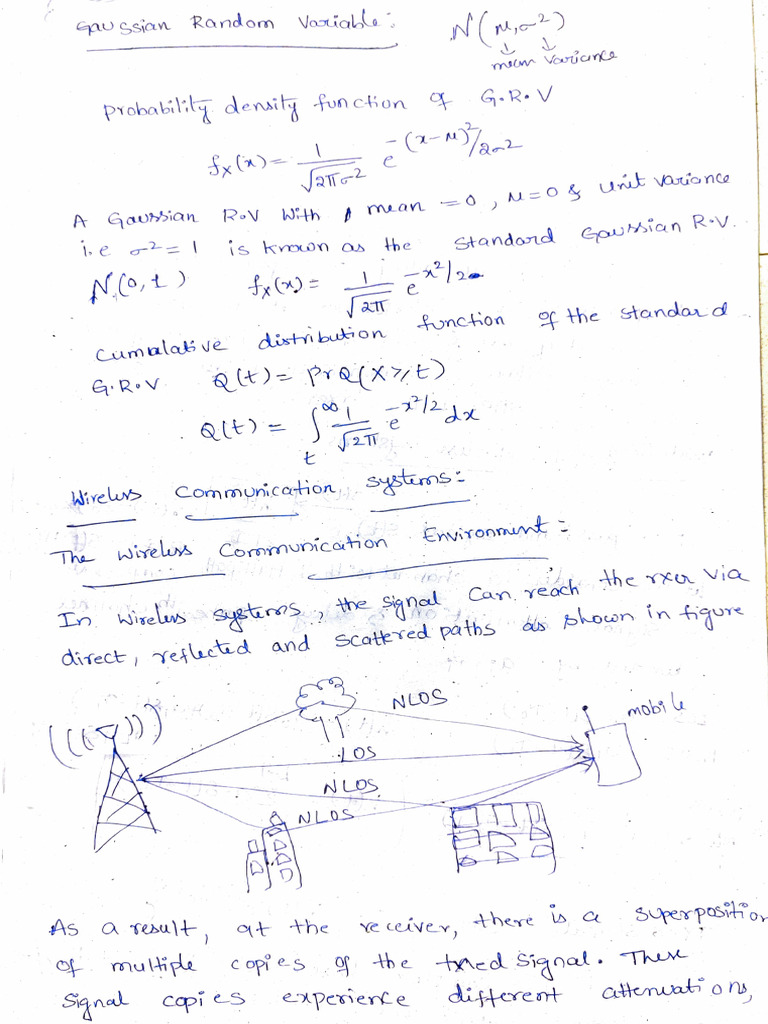 Gaussian Random Variable:
N(μ,σ²)
mean variance
Probability density function of G.R.V
fX(x) = 1/√2πσ² e^-(x-μ)²/2σ²
A Gaussian R.V with mean =0, μ=0 & unit variance
i.e σ²=1 is known as the standard Gaussian R.V.
N(0,1) fX(x) = 1/√2π e^-x²/2
Cumulative distribution function of the standard
G.R.V Q(t) = PrQ(X⩾t)
Q(t) = ∫t^∞ 1/√2π e^-x²/2 dx
Wireless Communication systems:-
The Wireless Communication Environment:-
In wireless systems, the signal can reach the rxer via
direct, reflected and scattered paths as shown in figure
NLOS
mobile
LOS
NLOS
NLOS
As a result, at the receiver, there is a superposition
of multiple copies of the txed signal. These
signal copies experience different attenuations,